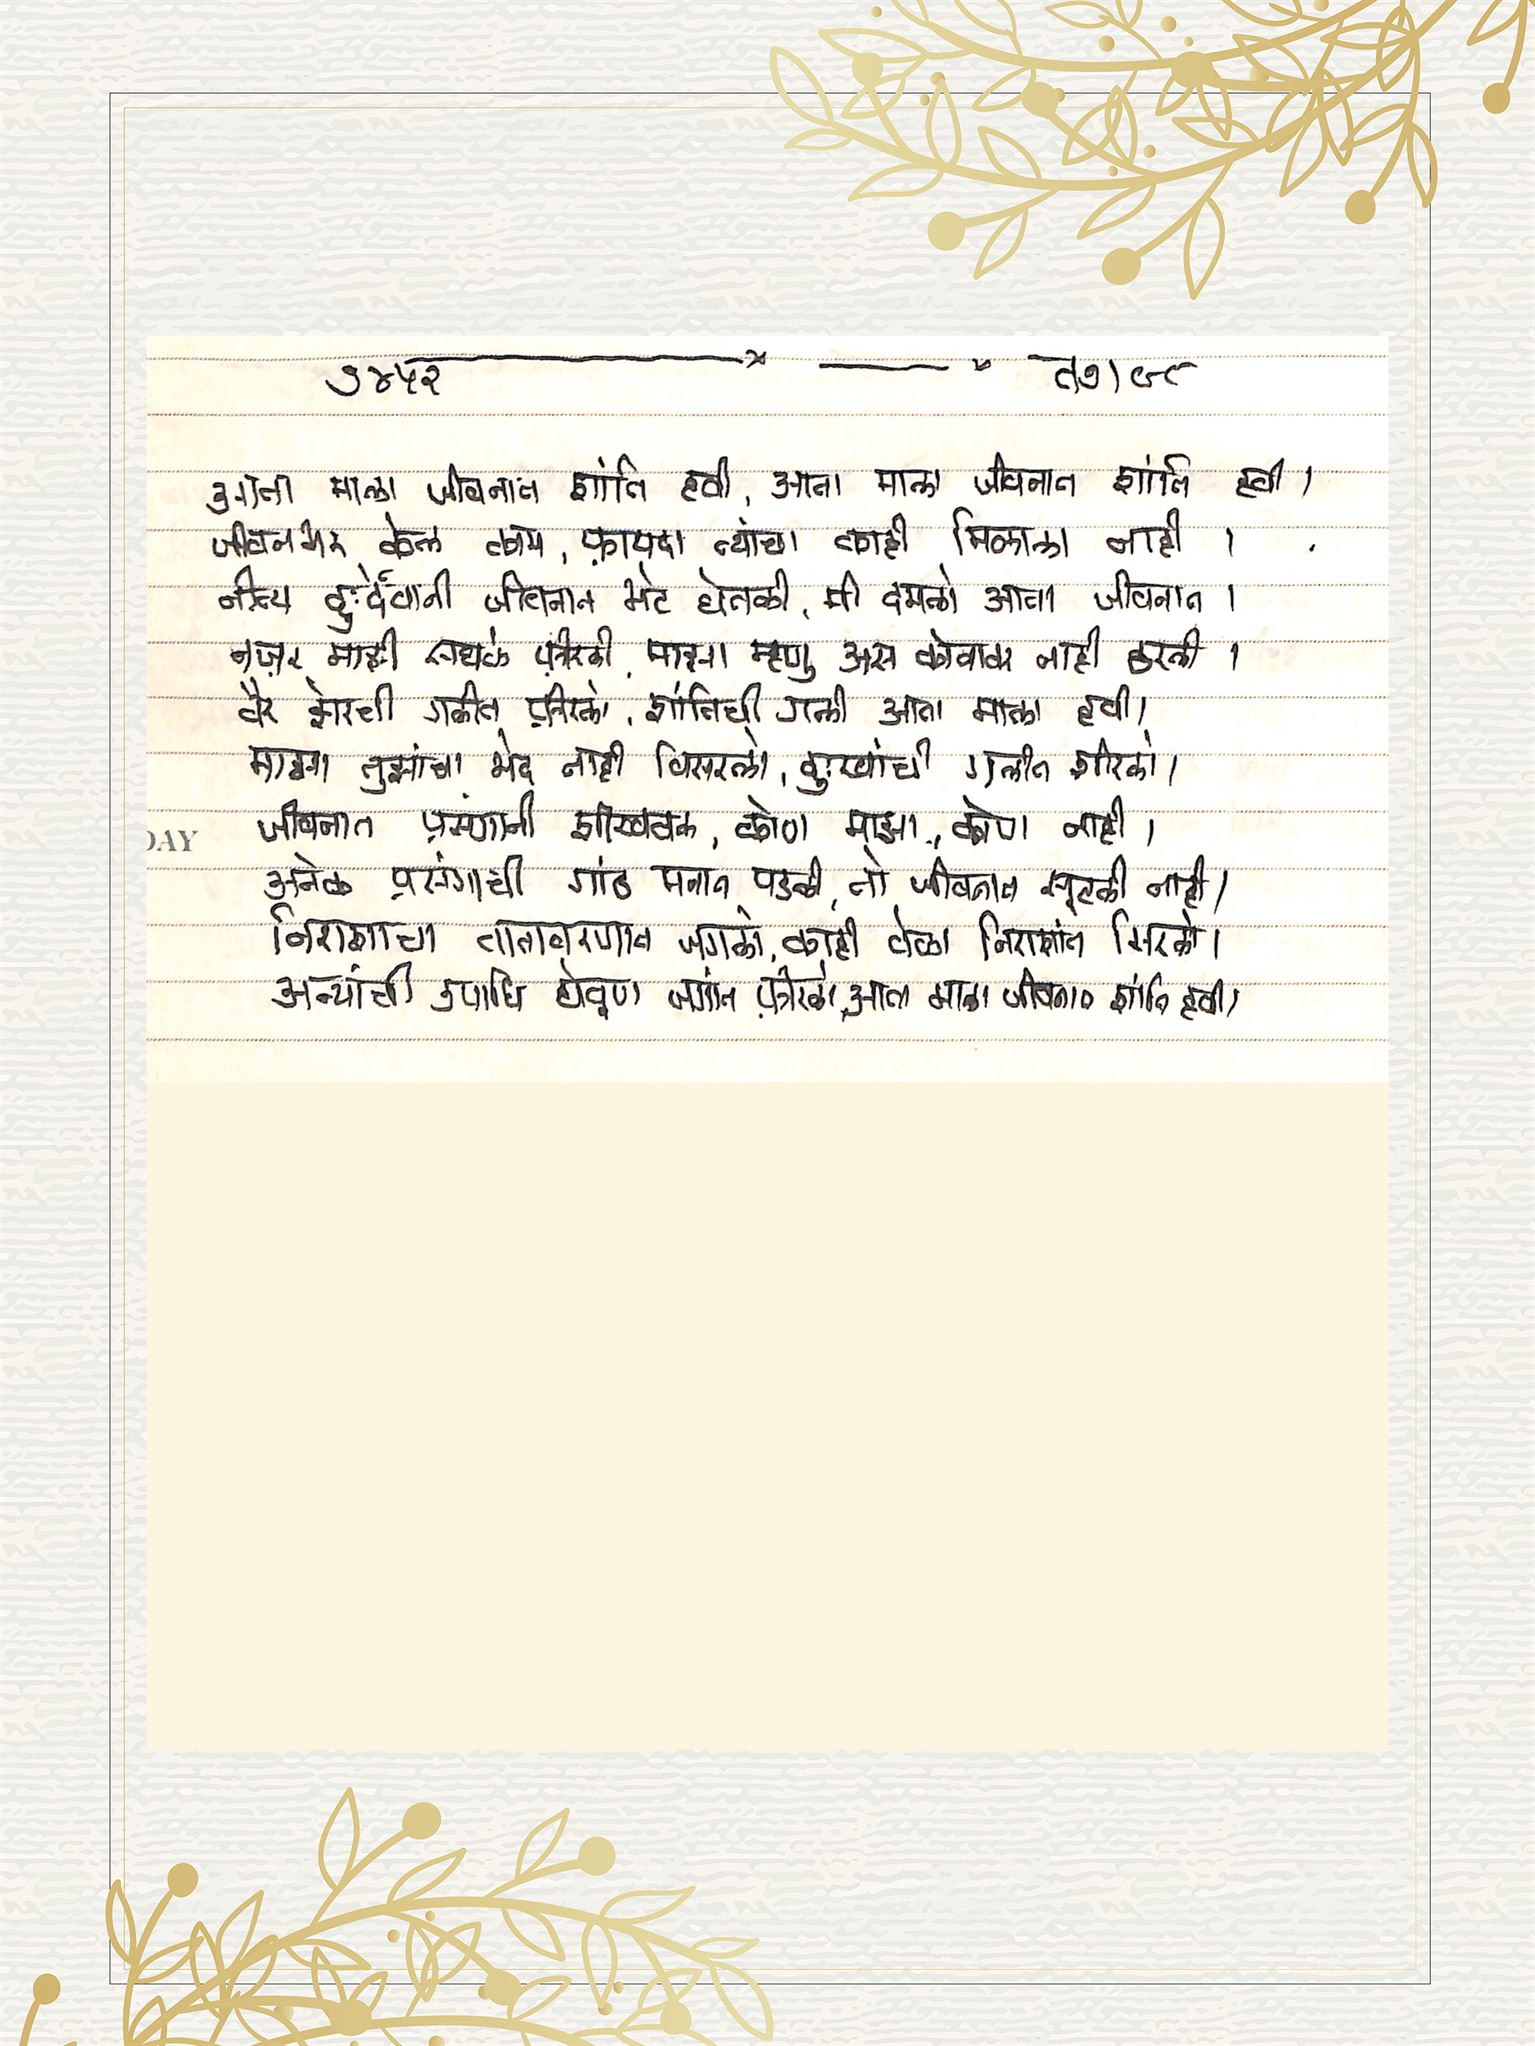 ७४५२
आता माला जीवनात शांति हवी, आता माला जीवनात शांति हवी।
जीवनभर केल काम, फ़ायदा त्यांचा काही मिळाला नाही ।
नीत्य दुःर्देवानी जीवनात भेट घेतली, मी दमलो आता जीवनात ।
नज़र माझी सघळं फ़ीरली, माझा म्हणु अस नाही ठरली ।
वैर झेरची गलीत फ़ीरलो, शांतिची गली आता माला हवी।
माझा तुझांचा भेद नाही विसरलो, दुःखांची गलीत शीरलो।
जीवनात प्रसंगानी शीखवल, कोण माझा, कोण नाही।
DAY
अनेक प्रसंगाची गांठ मनात पडली, तो जीवनात सूटली नाही।
निराशाचा वातावरणात जगलो, काही वेळा निराशांत सिरलो।
अन्यांची उपाधि घेवूण जगांत फ़ीरलो, आता माला जीवनात शांति हवी।